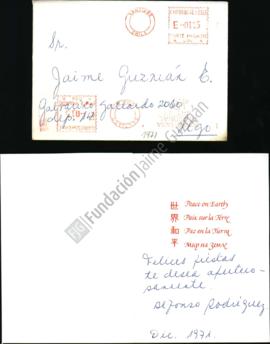 SANTIAGO
CHILE
Sr.
Jaime Guzmán E.
Galvarino Gallardo 2080
Dep.
1971
Stgo
Fundación Jaime Guzmán
世界和平
Peace on Earth
Paix sur la Terre
Paz en la Tierra
Мир на Земле
Felices fiestas
te desea afectuo-
samente.
Alfonso Rodríguez.
Dic. 1971.